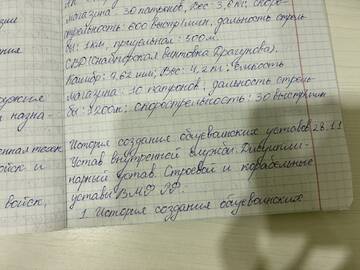 магазина: 30 патронов, Вес: 3,6 кг; ско-
рельность: 600 выстр/мин, дальность стрель
бы: 1км, прицельная: 500м.
СВД (Снайперская винтовка Драгунова).
Калибр: 7,62 мм; Вес: 4,2 кг. Ёмкость
магазина: 10 патронов, дальность стрель
бы: 1200м; скорострельность: 30 выстр/мин
История создания общевоинских уставов 28.11
Устав внутренней службы. Дисципли-
нарный устав. Строевой и корабельные
уставы ВМФ РФ.
1. История создания общевоинских
оружие
и назна-
войск и
войск,